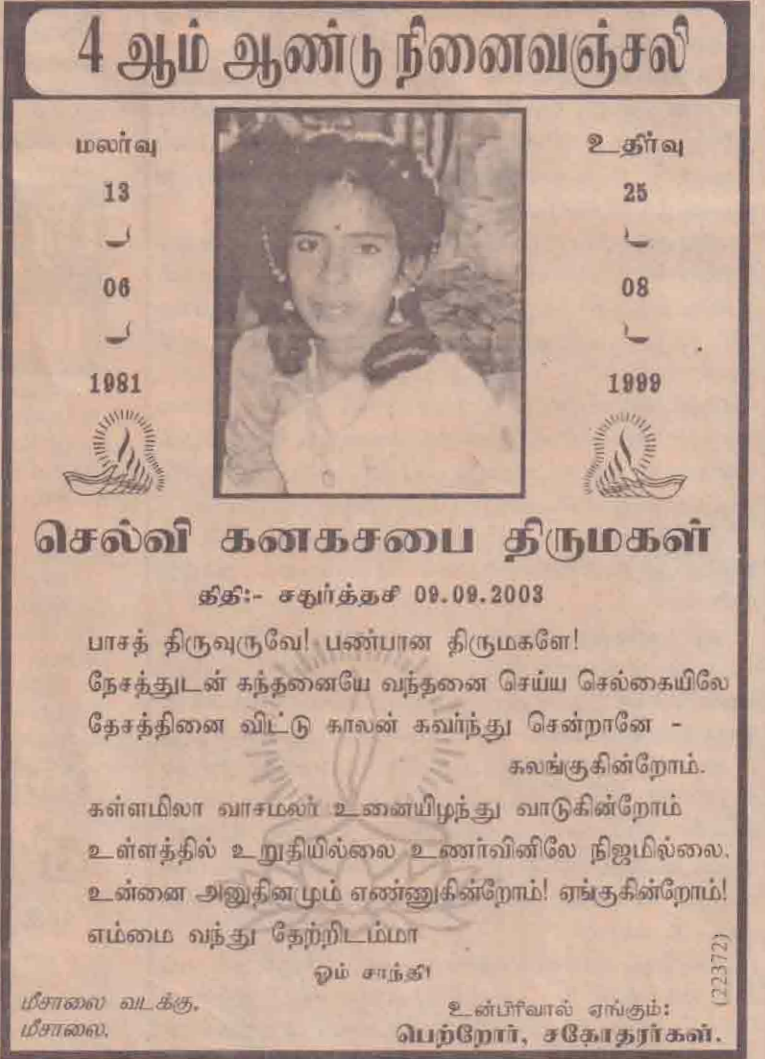 4 ஆம் ஆண்டு நினைவஞ்சலி
மலர்வு
13
06
1981
உதிர்வு
25
08
1999
செல்வி கனகசபை திருமகள்
திதி:- சதுர்த்தசி 09.09.2003
பாசத் திருவுருவே! பண்பான திருமகளே!
நேசத்துடன் கந்தனையே வந்தனை செய்ய செல்கையிலே
தேசத்தினை விட்டு காலன் கவர்ந்து சென்றானே -
கலங்குகின்றோம்.
கள்ளமிலா வாசமலர் உனையிழந்து வாடுகின்றோம்
உள்ளத்தில் உறுதியில்லை உணர்வினிலே நிஜமில்லை.
உன்னை அனுதினமும் எண்ணுகின்றோம்! ஏங்குகின்றோம்!
எம்மை வந்து தேற்றிடம்மா
ஓம் சாந்தி!
மீசாலை வடக்கு,
மீசாலை.
உன்பிரிவால் ஏங்கும்:
பெற்றோர், சகோதரர்கள்.
(22372)